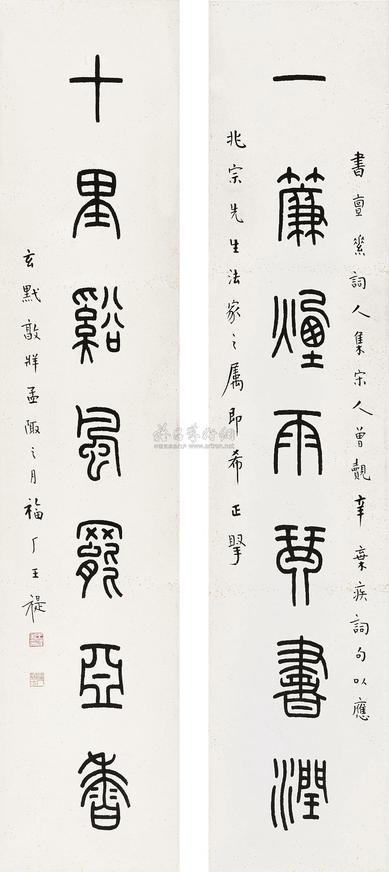 一簾煙雨琴書潤
書亶詞人集宋人曾覿辛棄疾詞句以應
兆宗先生法家之屬即希正
十里谿風罷亞香
玄黓敦牂孟陬之月福厂王禔